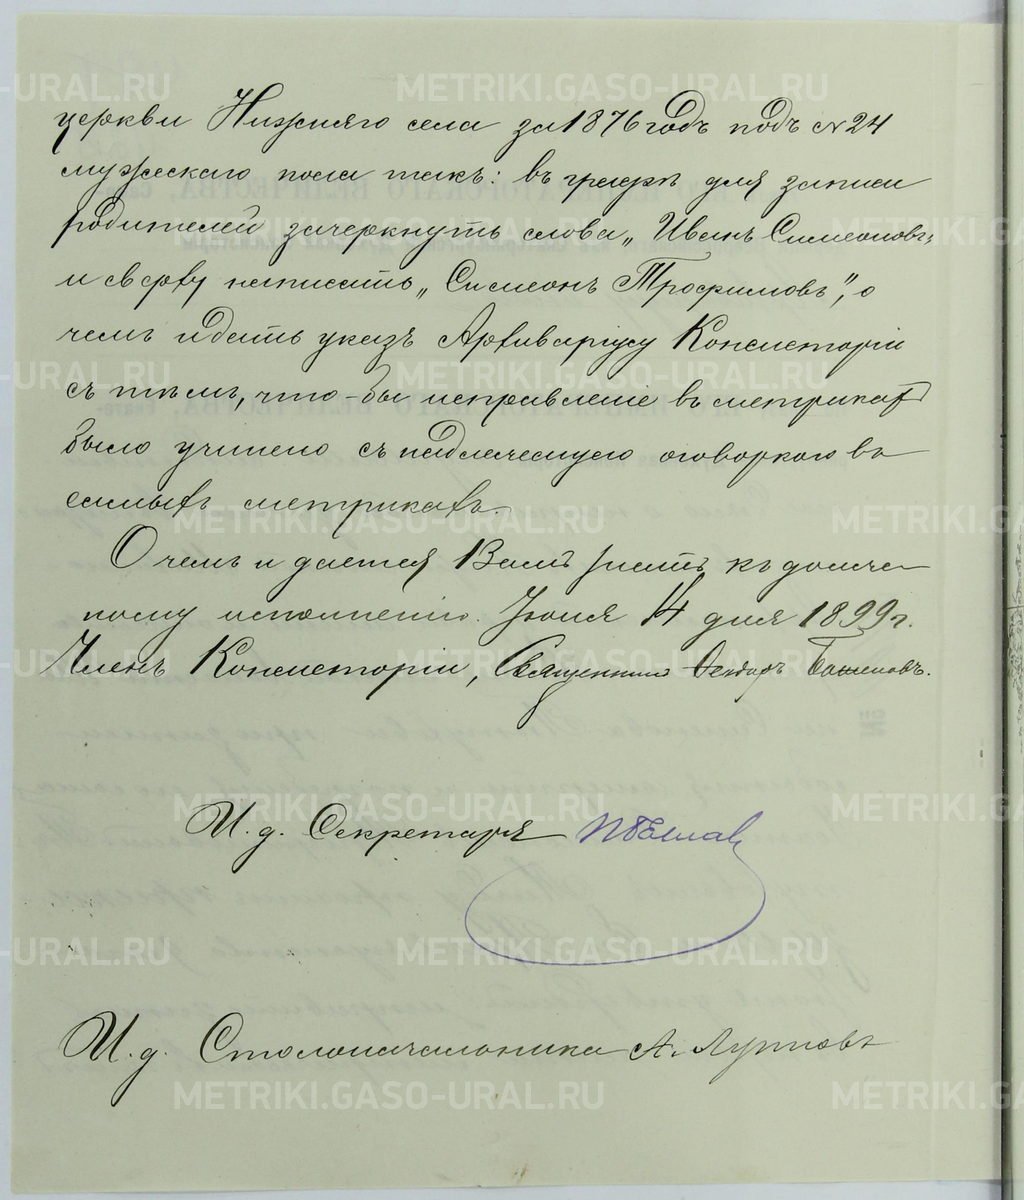 церкви Нижняго села за 1876 годъ подъ № 24
мужескаго пола такъ: въ графѣ для записи
родителей зачеркнуть слова „Иванъ Симеоновъ“
и сверху написать „Симеонъ Трофимовъ“, о
чемъ и дать указъ Архиваріусу Консисторіи
съ тѣмъ, что-бы исправленіе въ метрикахъ
было учинено съ надлежащею оговоркою въ
самыхъ метрикахъ.
О чемъ и дается Вамъ указъ къ должно-
ному исполненію. Іюня 14 дня 1899 г.
Членъ Консисторіи, Священникъ
И. д. Секретаря
И. д. Столоначальника А. Луппов
METRIKI.GASO-URAL.RU